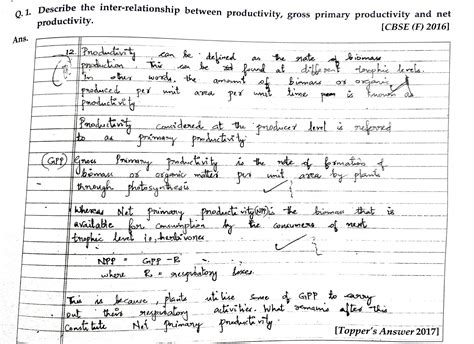 Q. 1. Describe the inter-relationship between productivity, gross primary productivity and net
productivity. [CBSE (F) 2016]
Ans.
12. Productivity can be defined as the rate of biomass
production. This can be found at different trophic levels.
In other words, the amount of biomass or organic
produced per unit area per unit time is known as
productivity
Productivity considered at the producer level is referred
to as primary productivity.
GPP Gross Primary productivity is the rate of formation of
biomass or organic matter per unit area by plants
through photosynthesis
Whereas Net primary productivity (NPP) is the biomass that is
available for consumption by the consumers of next
trophic level i.e, herbivores
NPP = GPP - R
where R = respiratory losses
This is because, plants utilise some of GPP to carry
out their respiratory activities. What remains after this
constitute Net Primary productivity.
[Topper's Answer 2017]